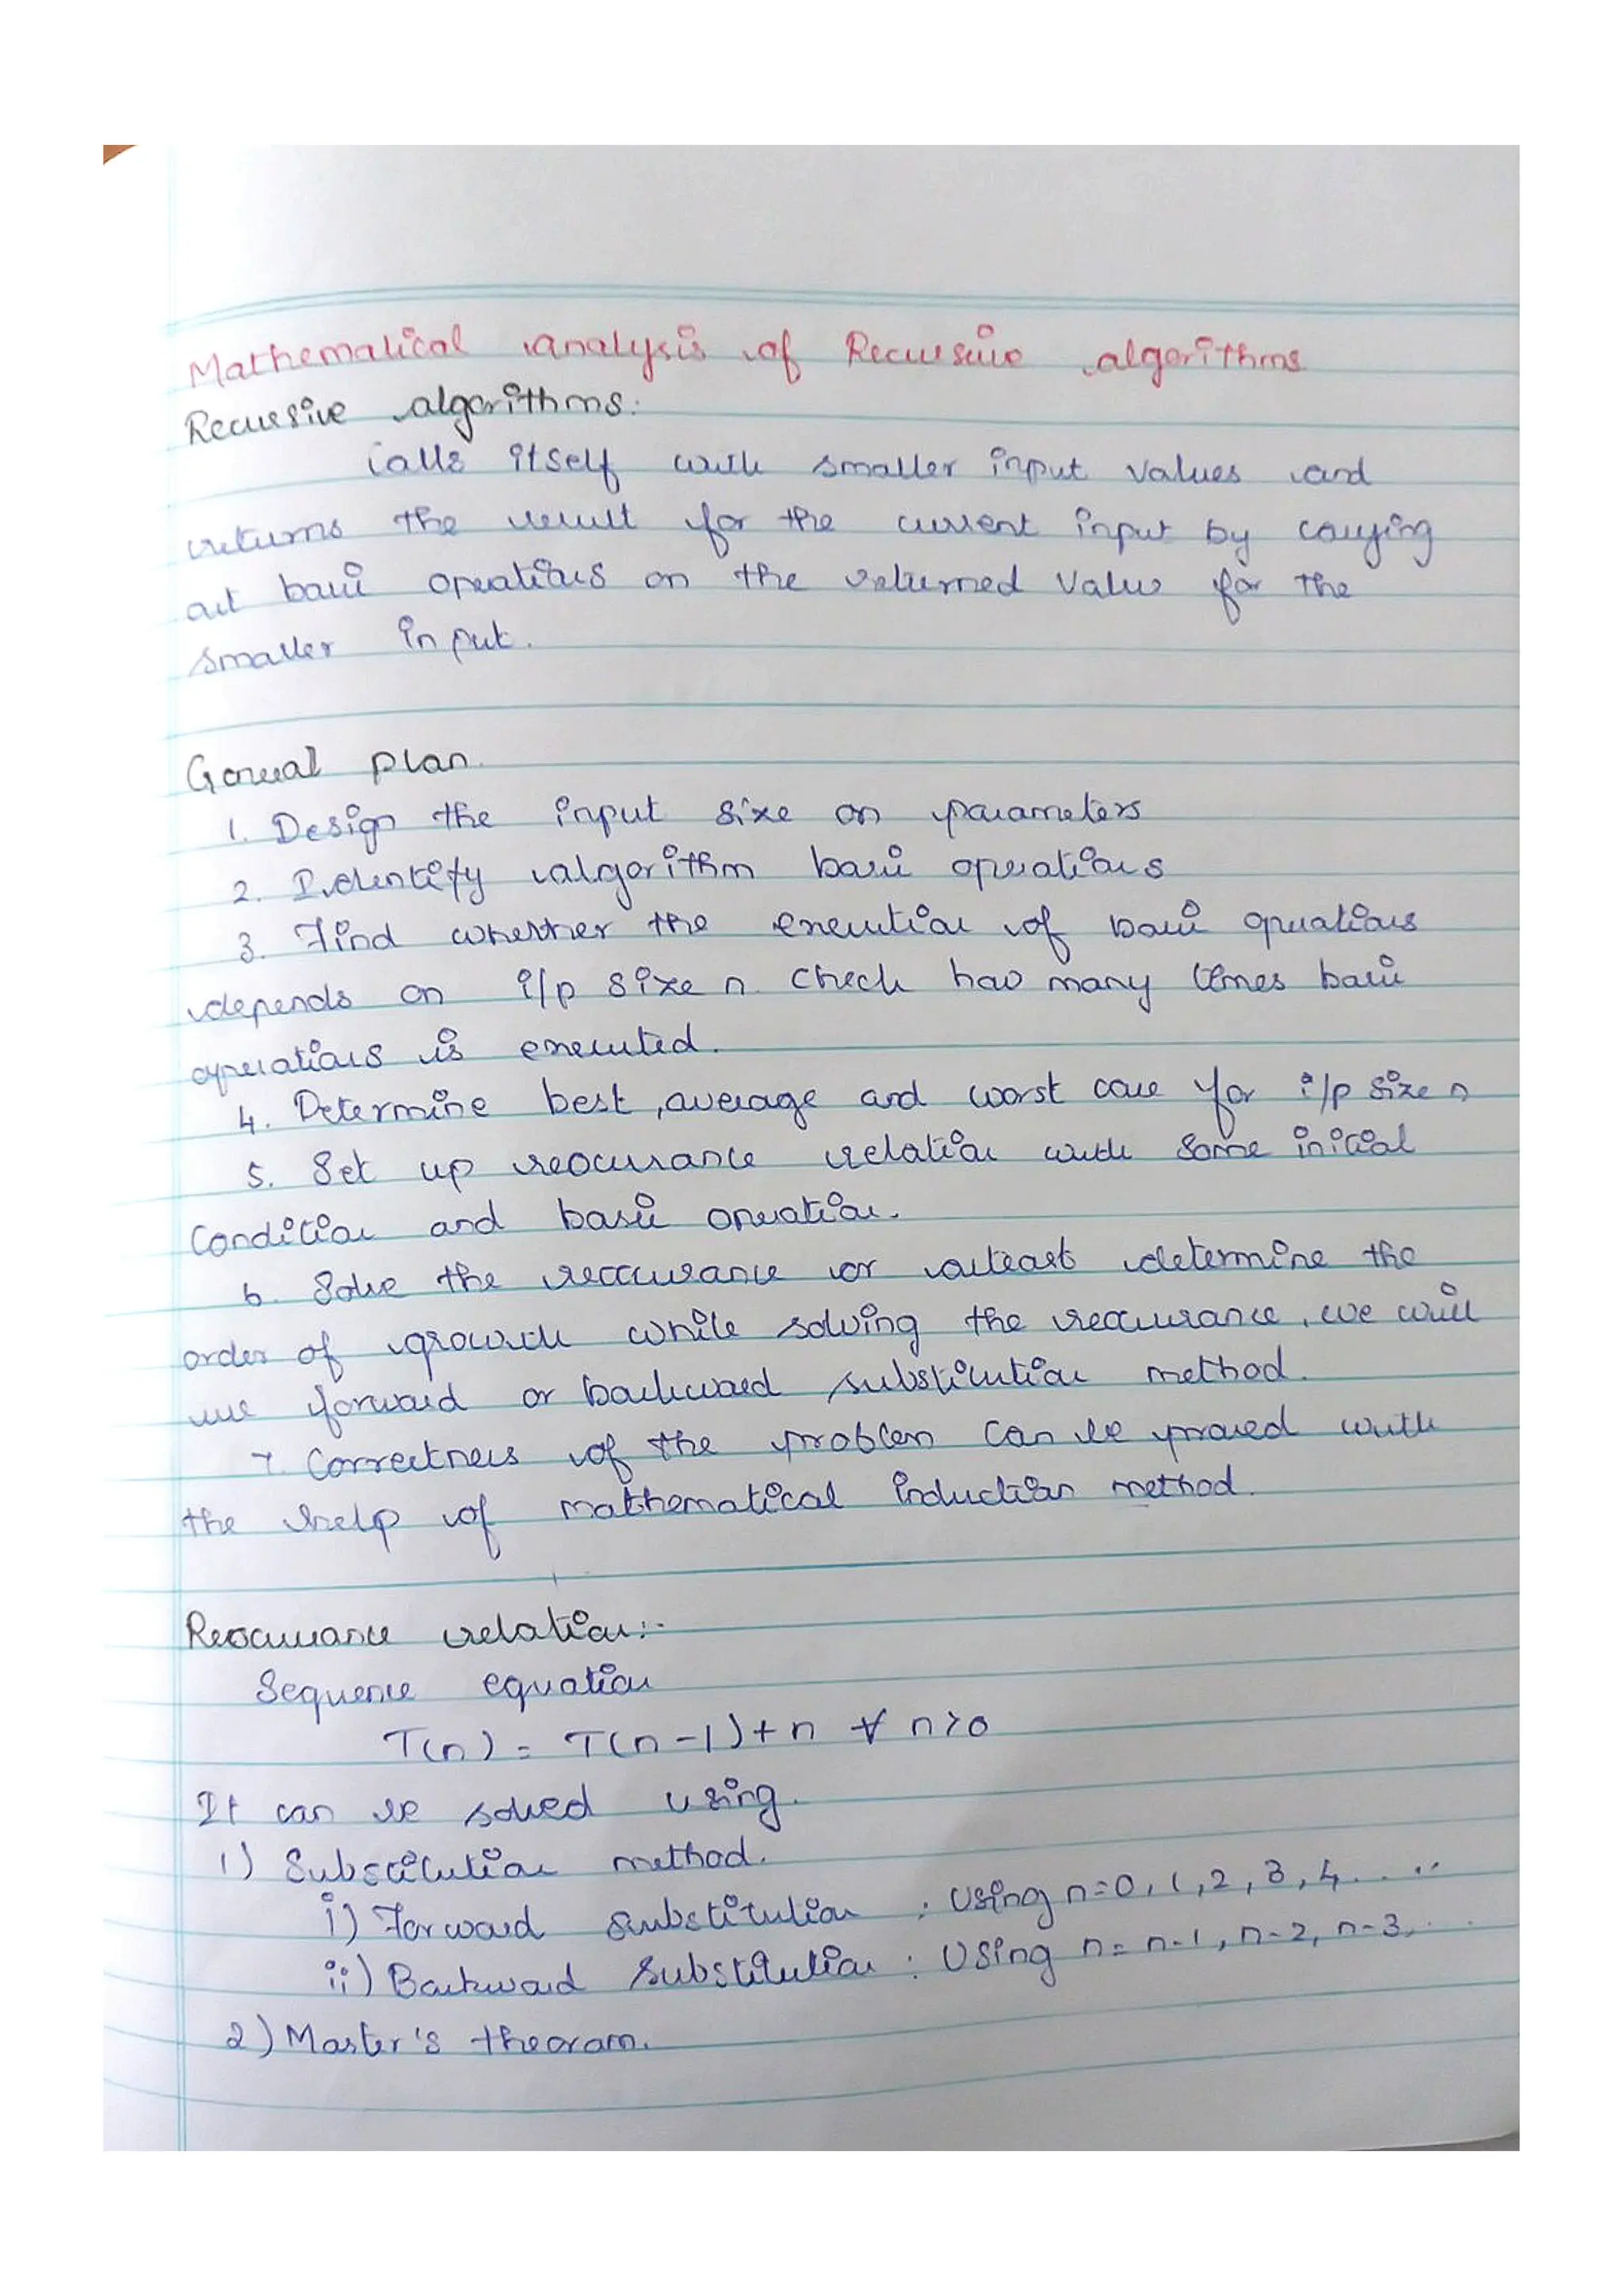 Mathematical analysis of Recursive algorithms
Recursive algorithms:
Calls itself with smaller input values and
returns the result for the current input by carrying
out basic operations on the returned value for the
smaller input.
General plan
1. Design the input size on parameters
2. Identify algorithm basic operations
3. Find whether the execution of basic operations
depends on i/p size n. Check how many times basic
operations is executed.
4. Determine best, average and worst case for i/p size n
5. Set up reocurrance relation with some initial
Condition and basic operation.
6. Solve the reccurance or atleast determine the
order of growth while solving the reccurance, we will
use forward or backward substitution method.
7. Correctness of the problem can be proved with
the help of mathematical induction method.
Reocurrance relation:-
Sequence equation
T(n) = T(n-1)+n ∀ n>0
It can be solved using.
1) Substitution method.
i) Forward substitution : Using n=0,1,2,3,4.....
ii) Backward substitution : Using n= n-1, n-2, n-3...
2) Master's theoram.